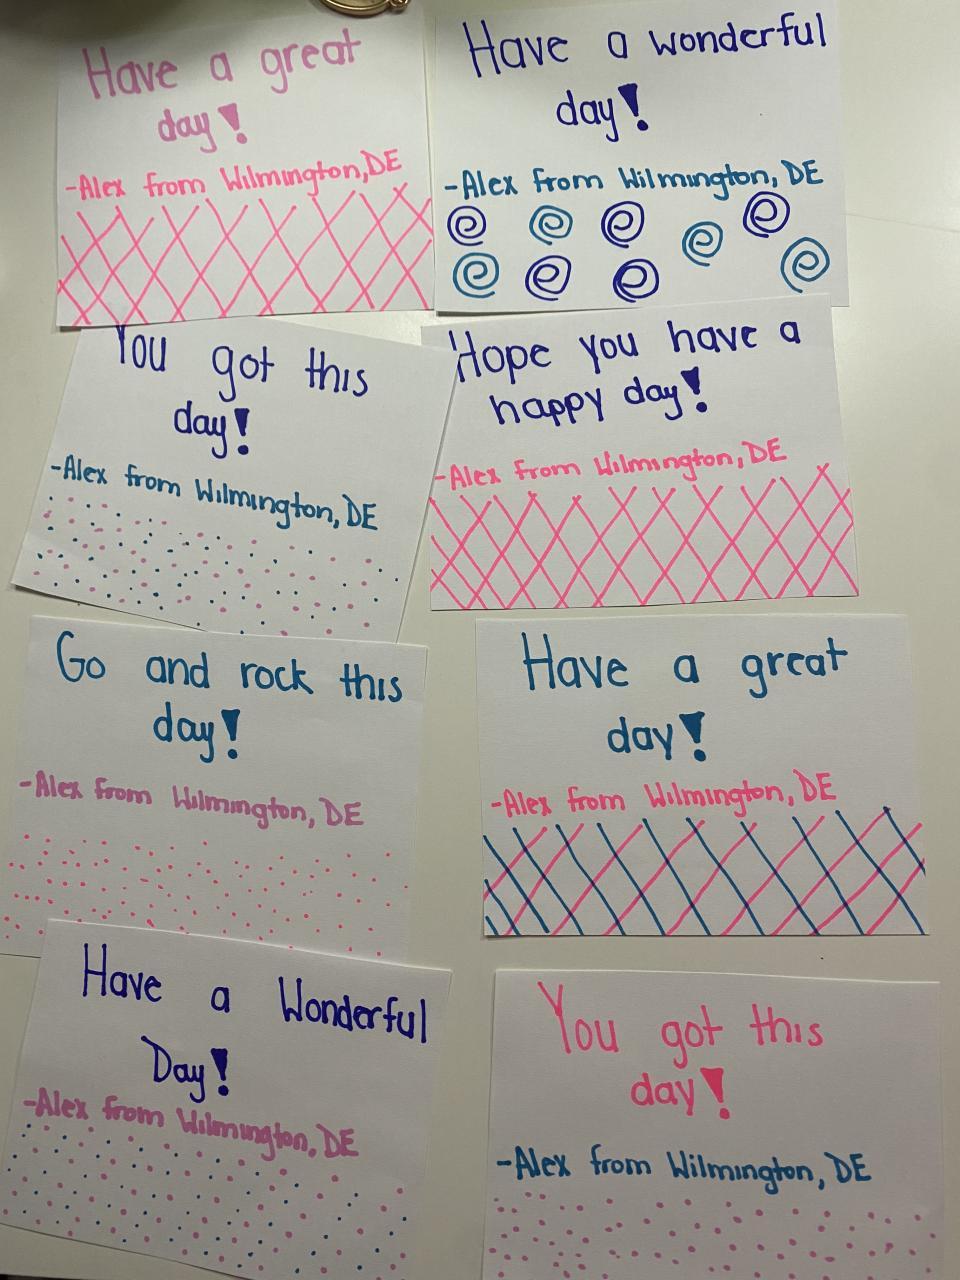 Have a great
day!
-Alex from Wilmington, DE
Have a wonderful
day!
-Alex from Wilmington, DE
You got this
day!
-Alex from Wilmington, DE
Hope you have a
happy day!
-Alex from Wilmington, DE
Go and rock this
day!
-Alex from Wilmington, DE
Have a great
day!
-Alex from Wilmington, DE
Have a Wonderful
Day!
-Alex from Wilmington, DE
You got this
day!
-Alex from Wilmington, DE